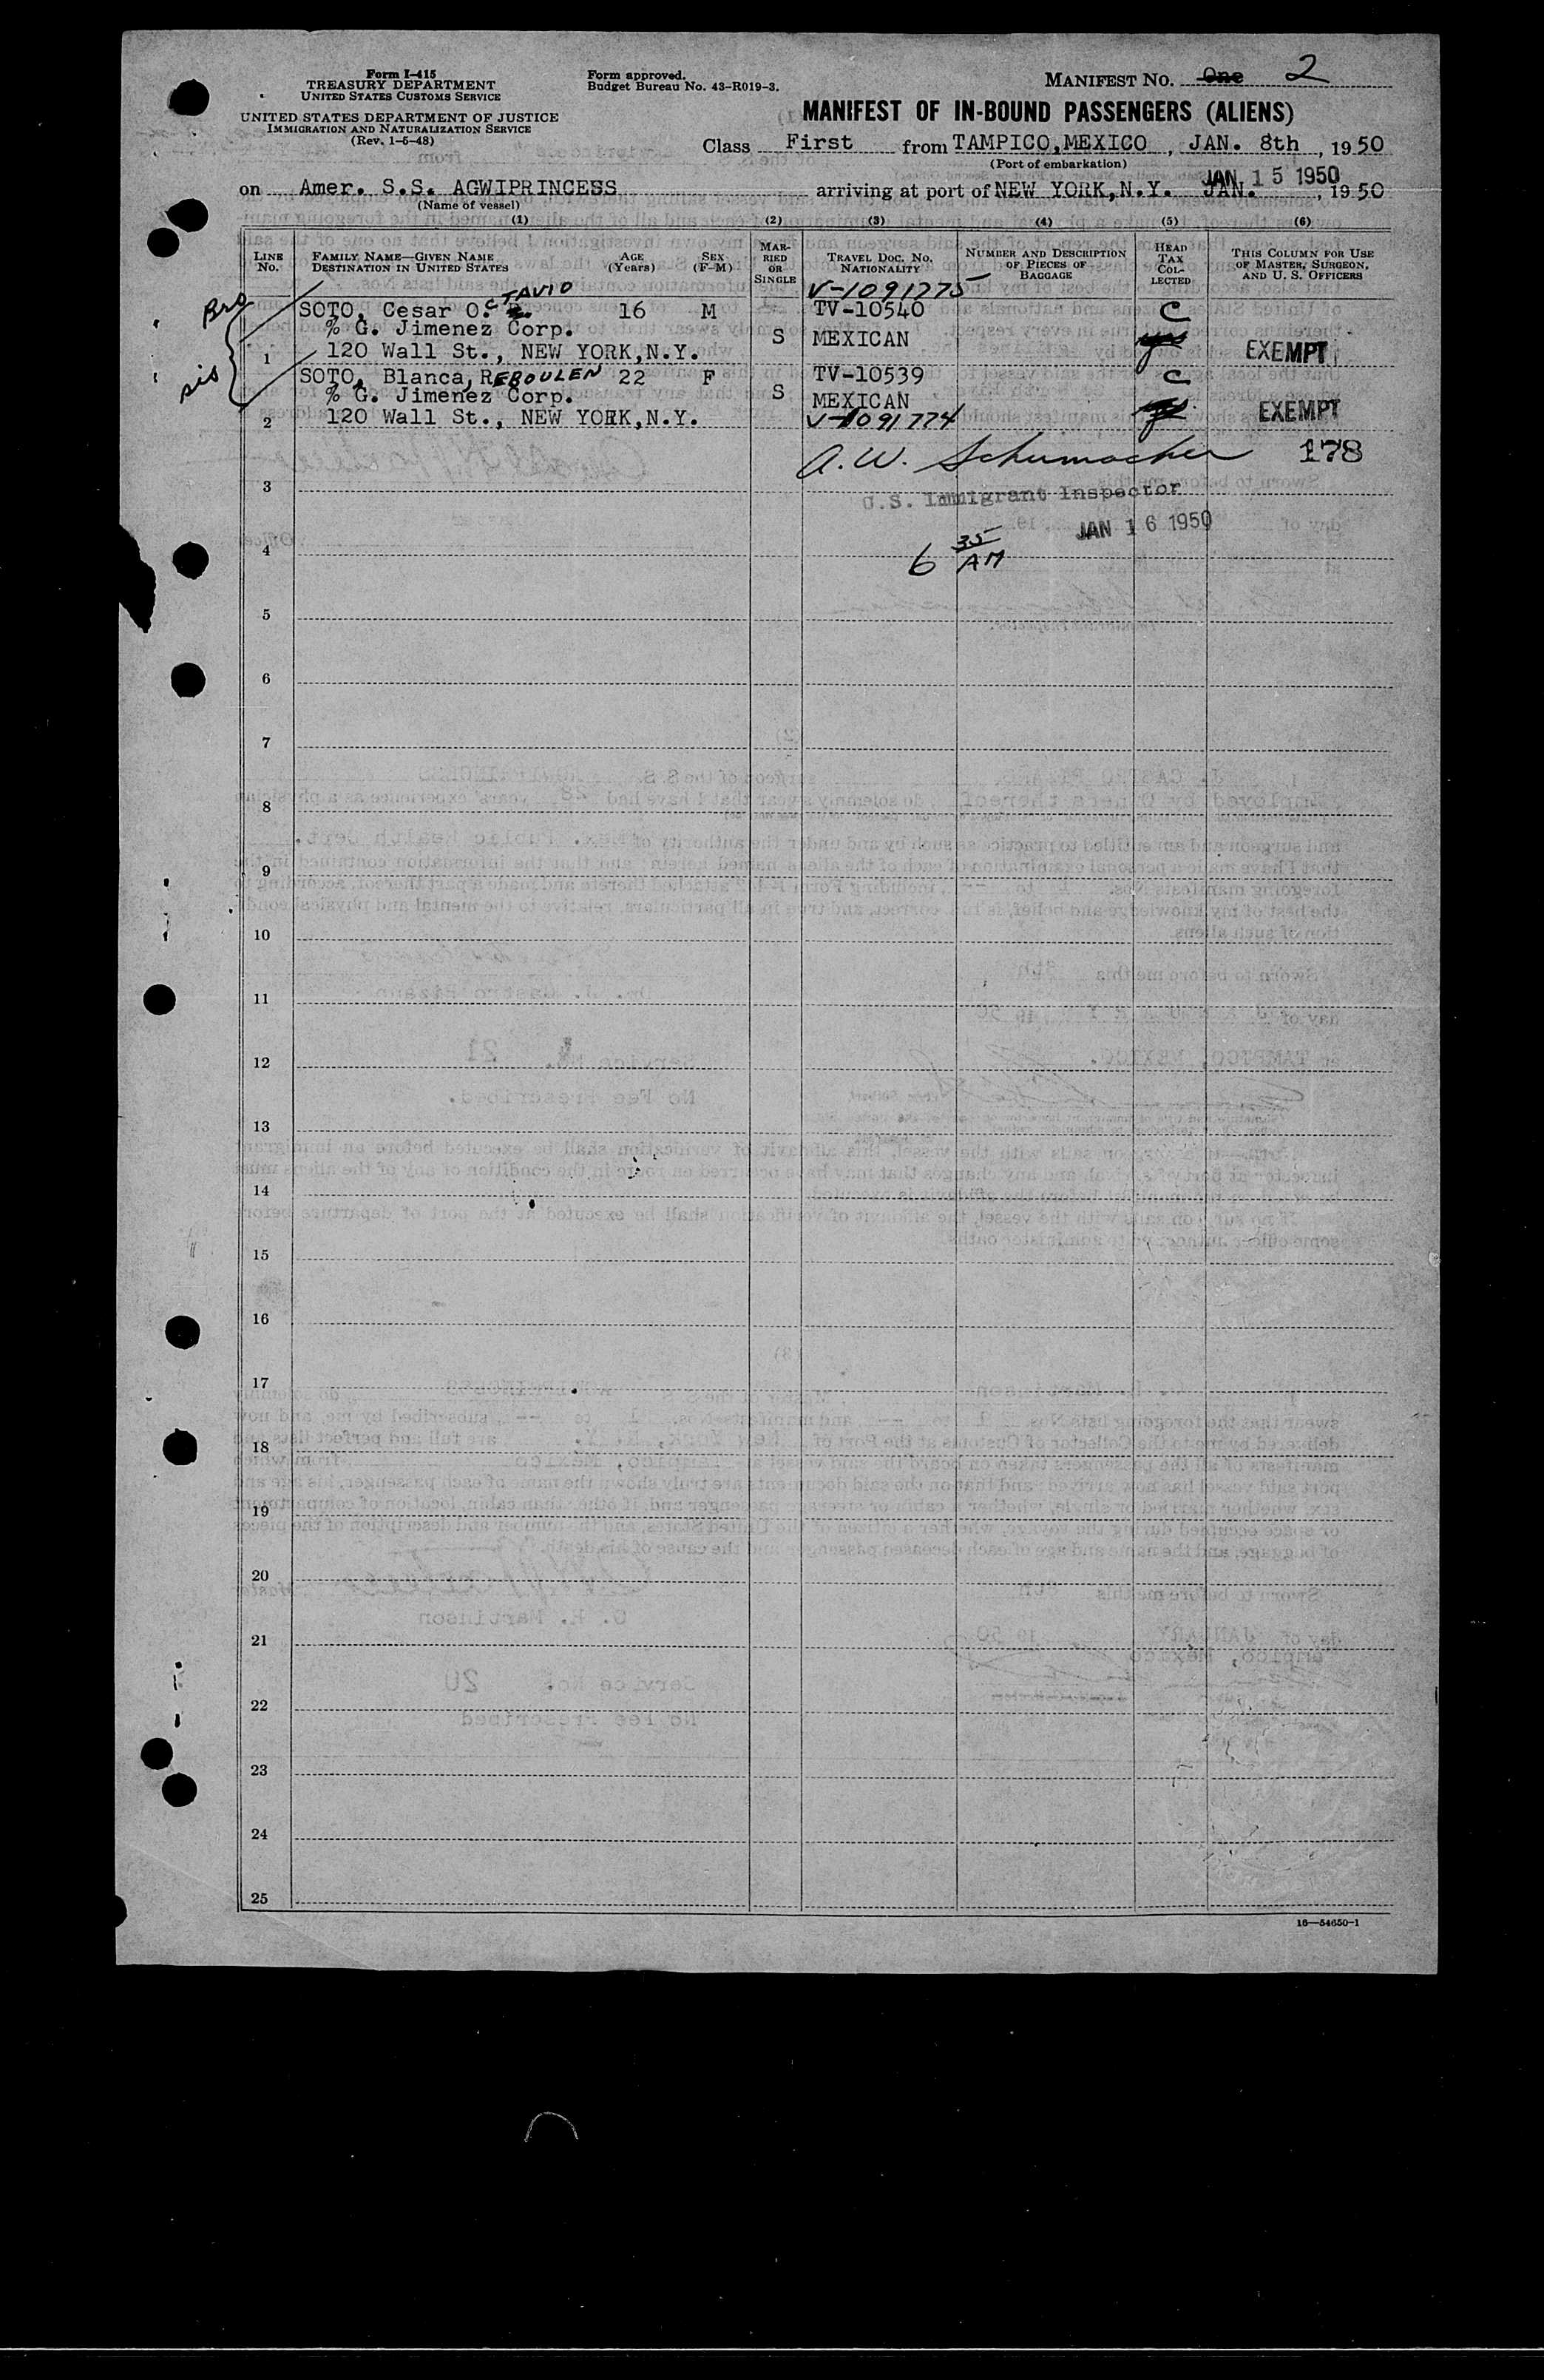 Form I-415
TREASURY DEPARTMENT
UNITED STATES CUSTOMS SERVICE
UNITED STATES DEPARTMENT OF JUSTICE
IMMIGRATION AND NATURALIZATION SERVICE
(Rev. 1-5-48)
Form approved.
Budget Bureau No. 43-R019-3.
MANIFEST NO. One 2
MANIFEST OF IN-BOUND PASSENGERS (ALIENS)
Class First from TAMPICO,MEXICO, JAN. 8th, 1950
(Port of embarkation)
JAN 15 1950
on Amer. S.S. AGWIPRINCESS arriving at port of NEW YORK,N.Y. JAN. , 1950
(Name of vessel)
(1) (2) (3) (4) (5) (6)
LINE No. FAMILY NAME—GIVEN NAME DESTINATION IN UNITED STATES AGE (Years) SEX (F-M) MARRIED OR SINGLE TRAVEL DOC. NO. NATIONALITY NUMBER AND DESCRIPTION OF PIECES OF BAGGAGE HEAD TAX COLLECTED THIS COLUMN FOR USE OF MASTER, SURGEON, AND U. S. OFFICERS
V-1091775
Bro SOTO, Cesar O. CTAVIO 16 M TV-10540 C
% G. Jimenez Corp. S MEXICAN
1 120 Wall St., NEW YORK,N.Y. EXEMPT
sis SOTO, Blanca REBOULEN 22 F TV-10539 C
% G. Jimenez Corp. S MEXICAN EXEMPT
2 120 Wall St., NEW YORK,N.Y. V-1091774
A. W. Schumacher 178
3 U.S. Immigrant Inspector
JAN 16 1950
4 6 35 AM
5
6
7
8
9
10
11
12
13
14
15
16
17
18
19
20
21
22
23
24
25
16—54650-1